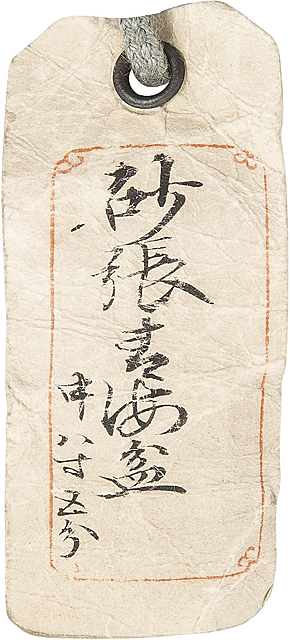 砂張青海盆
巾八寸五分